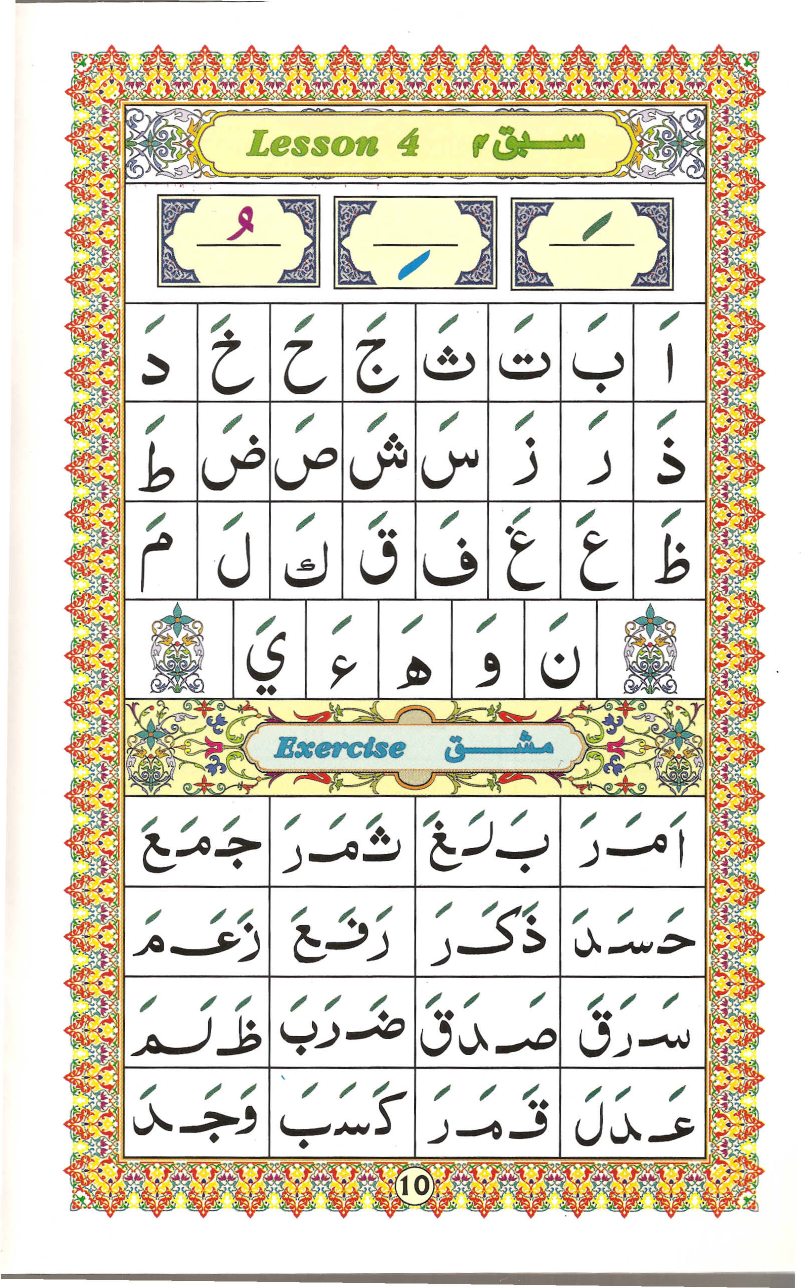 Lesson 4 سبق ۴
َ ِ ُ
اَ بَ تَ ثَ جَ حَ خَ دَ
ذَ رَ زَ سَ شَ صَ ضَ طَ
ظَ عَ غَ فَ قَ كَ لَ مَ
نَ وَ هَ ءَ يَ
Exercise مشق
اَمَرَ بَلَغَ ثَمَرَ جَمَعَ
حَسَدَ ذَكَرَ رَفَعَ زَعَمَ
سَرَقَ صَدَقَ ضَرَبَ ظَلَمَ
عَدَلَ قَمَرَ كَسَبَ وَجَدَ
10